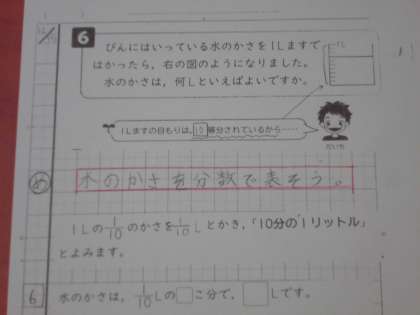 6
びんにはいっている水のかさを1Lますで
はかったら、右の図のようになりました。
水のかさは、何Lといえばよいですか。
1L
1Lますの目もりは、10等分されているから……
だいち
め 水のかさを分数で表そう。
1Lの1/10のかさを1/10Lとかき、「10分の1リットル」
とよみます。
6 水のかさは、1/10Lの□こ分で、□Lです。